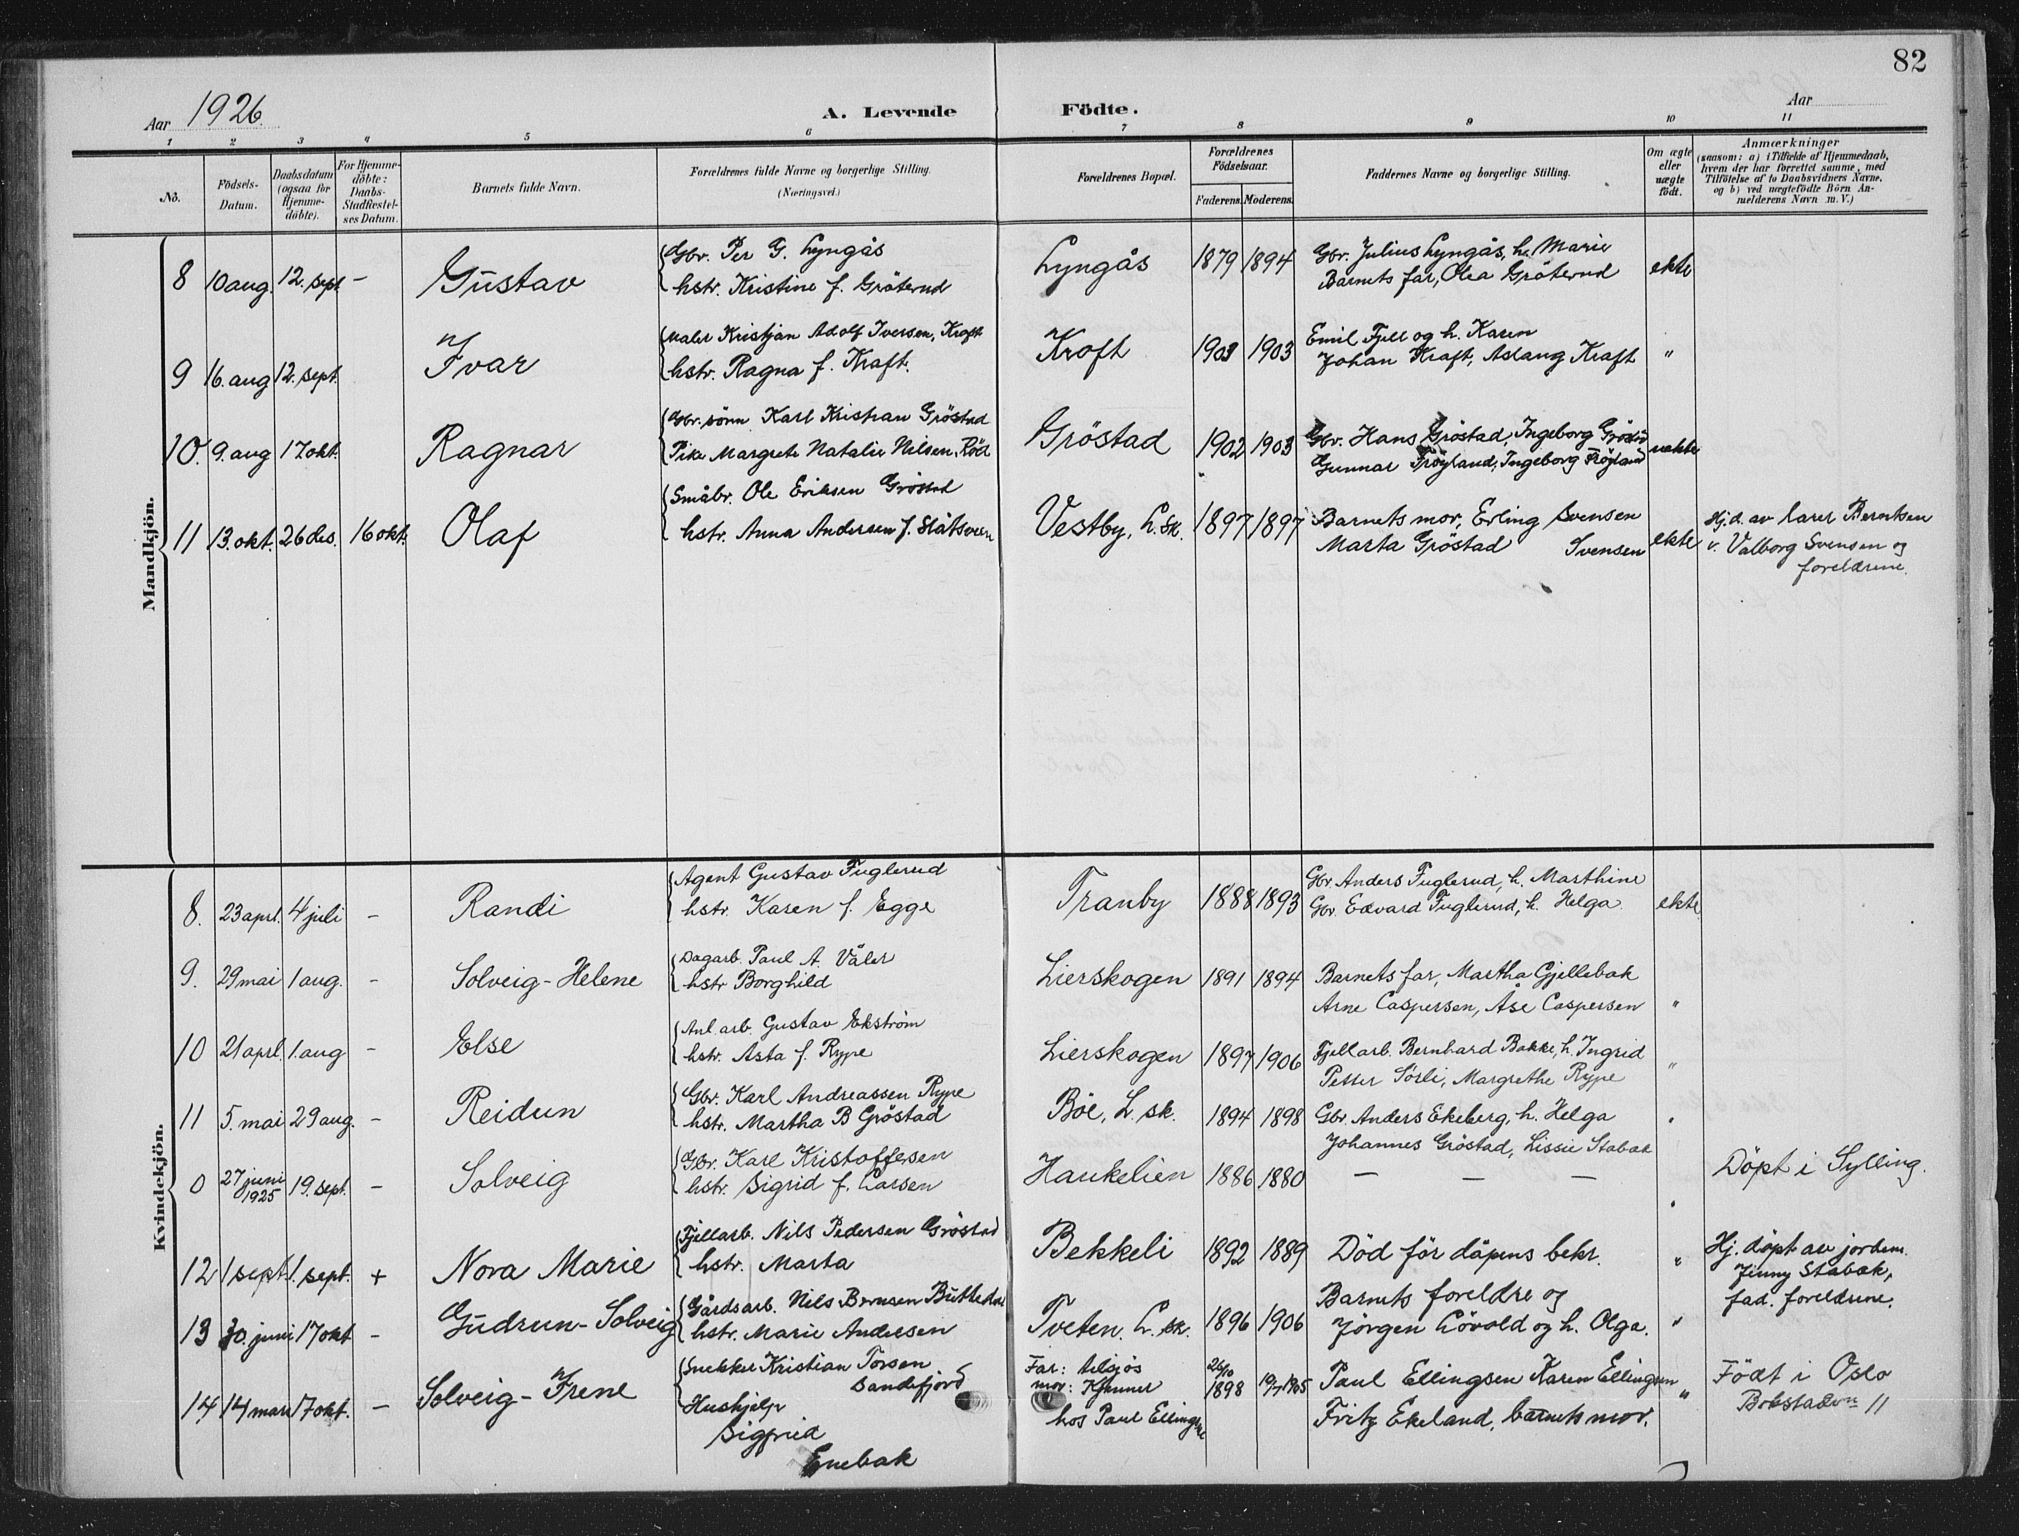 82
Aar 1926.
A. Levende Födte.
Aar
1 2 3 4 5 6 7 8 9 10 11
No.
Födsels-Datum.
Daabsdatum (ogsaa for Hjemme-döbte).
For Hjemme-döbte: Daabs-Stadfæstel-ses Datum.
Barnets fulde Navn.
Forældrenes fulde Navne og borgerlige Stilling.
(Næringsvei.)
Forældrenes Bopæl.
Forældrenes Födselsaar.
Faderens. Moderens.
Faddernes Navne og borgerlige Stilling.
Om ægte eller uægte födt.
Anmærkninger
(saasom: a) i Tilfælde af Hjemmedaab,
hvem der har forrettet samme, med
Tilföielse af to Daabsvidners Navne,
og b) ved uægtefödte Börn An-
melderens Navn m. V.)
Mandkjön.
8 10 aug. 12. sept - Gustav
Gbr. Per G. Lyngås
hstr. Kristine f. Gröterud
Lyngås 1879 1894
Gbr. Julius Lyngås, h. Marie
Barnets far, Olea Gröterud
ekte
9 16. aug 12. sept. Ivar
Maler Kristjan Adolf Iversen, Kroft
hstr. Ragna f. Kraft.
Kroft 1903 1903
Emil Fjell og h. Karen
Johan Kraft, Aslaug Kraft
"
10. 9. aug 17 okt. Ragnar
Gbr. sönn Karl Kristian Gröstad
Pike Margrete Natalie Nilsen,
Gröstad 1902 1903
Gbr. Hans Gröstad, Ingeborg Gröstad
Gunnar Fröyland, Ingeborg Fröyland
uekte
11 13. okt. 26 des. 16 okt. Olaf
Småbr. Ole Eriksen Gröstad
hstr. Anna Andersen f.
Vestby, L. sk. 1897 1897
Barnets mor, Erling Svensen
Marta Gröstad Svensen
ekte
Hj.d. av lærer Berntsen
v. Valborg Svensen og
foreldrene.
Kvindekjön.
8. 23 aprl. 4 juli - Randi
Agent Gustav Fuglerud
hstr. Karen f. Egge
Tranby 1888 1893
Gbr. Anders Fuglerud, h. Marthine
Gbr. Edvard Fuglerud, h. Helga.
ekte
9. 29 mai 1 aug. - Solveig-Helene
Dagarb. Paul A. Våler
hstr Borghild
Lierskogen 1891 1894
Barnets far, Martha Gjellebæk
Arne Caspersen, Åse Caspersen
"
10 21 aprl. 1. aug - Else
Anl. arb. Gustav Ekström
hstr. Asta f. Rype
Lierskogen 1897 1906
Fjellarb. Bernhard Bakke, h. Ingrid
Petter Sörli, Margrethe Rype
"
11 5. mai 29 aug. - Reidun
Gbr. Karl Andreassen Rype
hstr. Martha B Gröstad
Böe, L. sk. 1894 1898
Gbr. Anders Ekeberg, h. Helga
Johannes Gröstad, Lissie Stabæk
0 27 juni 1925 19. sept. - Solveig
Gbr. Karl Kristoffersen
hstr. Sigrid f. Larsen
Haukelien 1886 1880 — — —
Döpt i Sylling.
12 1 sept. 1. sept. + Nora Marie
Fjellarb. Nils Pedersen Gröstad
hstr. Marta
Bekkeli 1892 1889 Död för dåpens bekr. "
Hj. döpt av jordem.
Jenny Stabæk,
fad. foreldrene.
13 30. juni 17 okt - Gudrun-Solveig
Gårdsarb. Nils Berntsen
hstr. Marie Andersen
Tveten. L. sk. 1896 1906
Barnets foreldre og
Jörgen Lövold og h. Olga.
"
14 14 mars 17 okt. - Solveig-Irene
Snekker Kristian Torsen
Sandefjord
Hushjelp
Sigfrid
Enebak
Far:
mor: Kjenner
hos Paul Ellingsen
26/10 1898 19/7 1905
Paul Ellingsen Karen Ellingsen
Fritz Ekeland, barnets mor.
"
Födt i Oslo
Bokstadvn 11